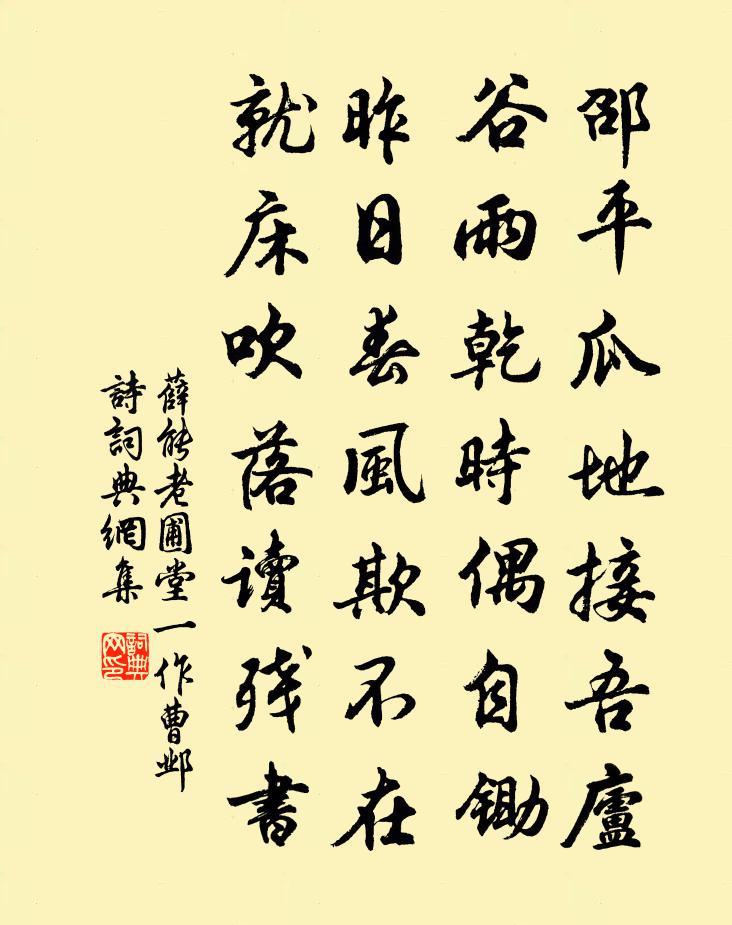 邵平瓜地接吾廬
谷雨乾時偶自鋤
昨日春風欺不在
就床吹落讀殘書
薛能老圃堂一作曹鄴
詩詞典網集
詞典網印